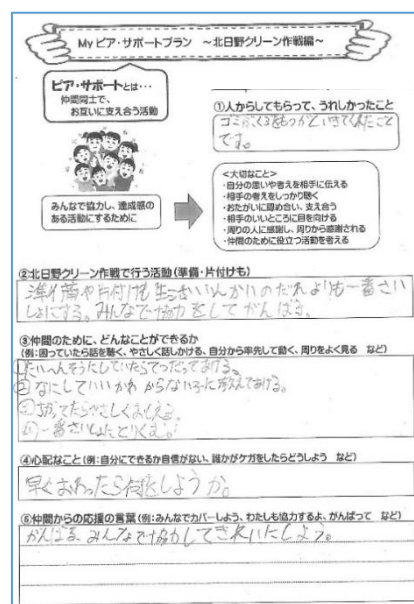 Myピア・サポートプラン ～北日野クリーン作戦編～
ピア・サポートとは・・・
仲間同士で、
お互いに支え合う活動
みんなで協力し、達成感の
ある活動にするために
①人からしてもらって、うれしかったこと
ゴミぶくろをもって
です。
<大切なこと>
・自分の思いや考えを相手に伝える
・相手の考えをしっかり聴く
・おたがいに認め合い、支え合う
・相手のいいところに目を向ける
・周りの人に感謝し、周りから感謝される
・仲間のために役立つ活動を考える
②北日野クリーン作戦で行う活動(準備・片付けも)
準備や片付けも生活いいんかいのだれよりも一番さい
しょにする。みんなで協力をしてがんばる。
③仲間のために、どんなことができるか
(例:困っていたら話を聴く、やさしく話しかける、自分から率先して動く、周りをよく見る など)
①たいへんそうにしていたらてつだってあげる。
②なにしていいかわからない子に教えてあげる。
③ちがってたらやさしくおしえる。
④一番さいしょにとりくむ。
④心配なこと(例:自分にできるか自信がない、誰かがケガをしたらどうしよう など)
早くおわったら何をしようか。
⑤仲間からの応援の言葉(例:みんなでカバーしよう、わたしも協力するよ、がんばって など)
がんばる、みんなで協力してきれいにしよう。